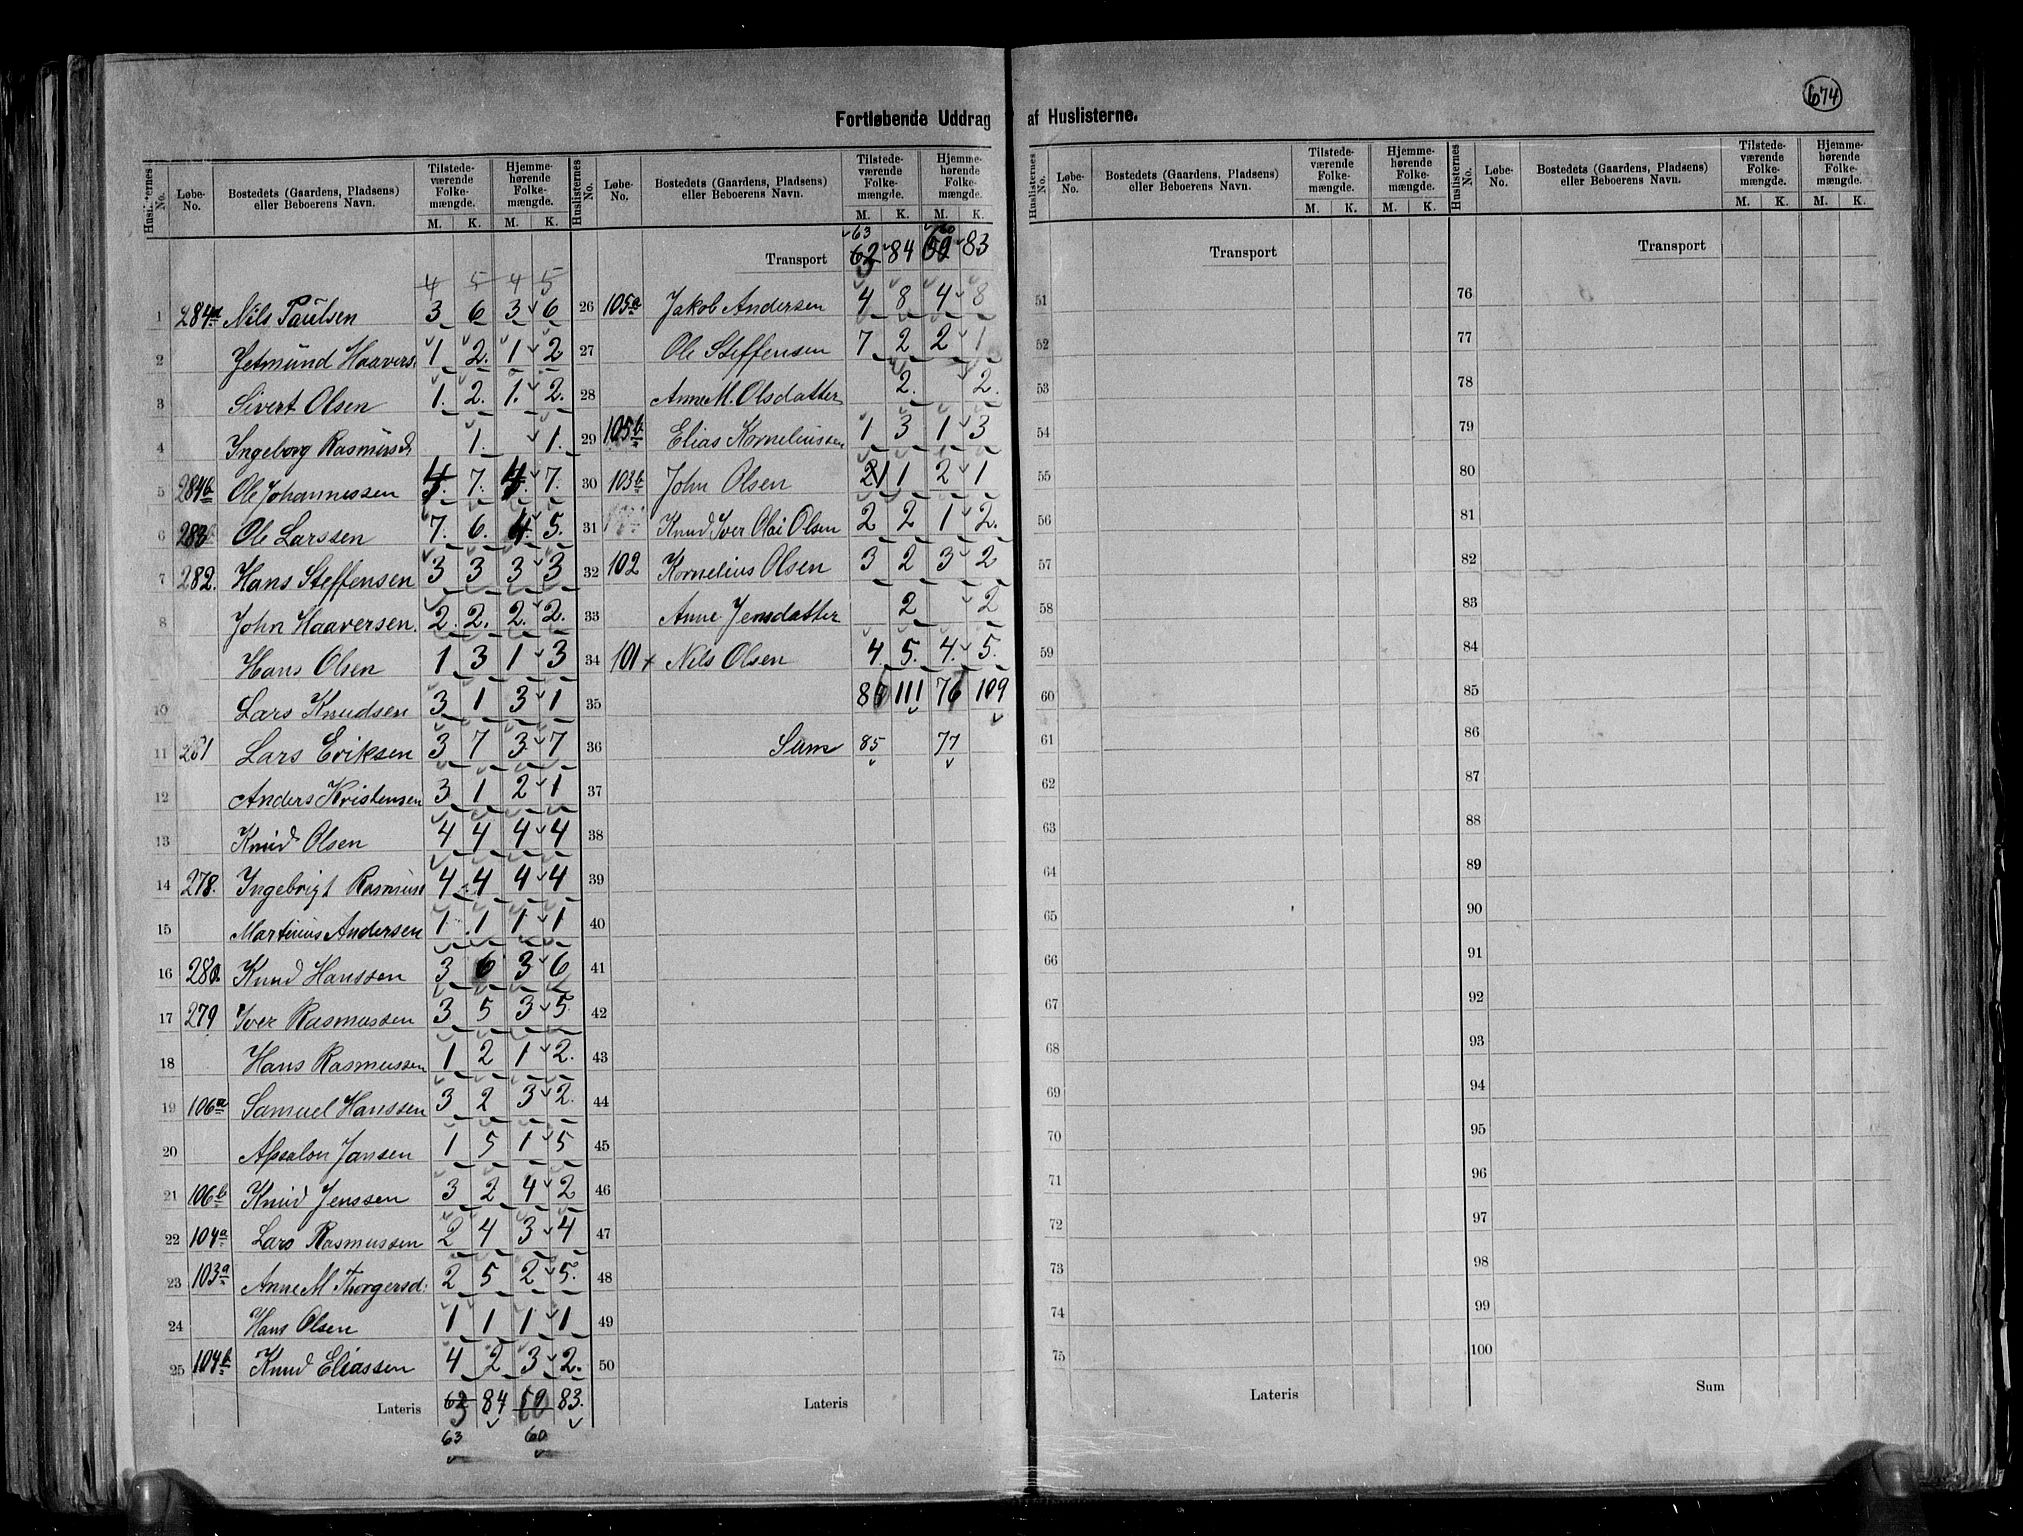 674
Fortløbende Uddrag af Huslisterne.
Huslisternes No. Løbe-No. Bostedets (Gaardens, Pladsens) eller Beboerens Navn. Tilstede-værende Folke-mængde. M. K. Hjemme-hørende Folke-mængde. M. K.
4 5 4 5
1 284a Nils Paulsen 3 6 3 6
2 Jetmund Haavers. 1 2. 1 2
3 Sivert Olsen 1. 2. 1. 2.
4 Ingeborg Rasmusd 1. 1.
5 284b Ole Johannessen 4 7. 4 7.
6 283 Ole Larssen 7. 6. 4. 5.
7 282. Hans Steffensen 3 3 3 3
8 John Haaversen. 2. 2. 2. 2.
Hans Olsen 1 3 1 3
10 Lars Knudsen 3 1 3 1
11 281 Lars Eriksen 3 7 3 7
12 Anders Kristensen 3 1 2 1
13 Knud Olsen 4 4 4 4
14 278. Ingebrigt Rasmuss 4 4 4 4
15 Martinus Andersen 1 1 1 1
16 280. Knud Hanssen 3 6 3 6
17 279 Iver Rasmussen 3 5 3 5
18 Hans Rasmussen 1 2 1 2.
19 106a Samuel Hanssen 3 2 3 2.
20 Absalon Jansen 1 5 1 5
21 106b Knud Jenssen 3 2 4 2
22 104a Lars Rasmussen 2 4 3 4
23 103a Anne M Thorgersd: 2 5 2 5.
24 Hans Olsen 1 1 1 1
25 104b Knud Eliassen 4 2 3 2.
Lateris 62 3 84 83.
63 60
Huslisternes No. Løbe-No. Bostedets (Gaardens, Pladsens) eller Beboerens Navn. Tilstede-værende Folke-mængde. M. K. Hjemme-hørende Folke-mængde. M. K.
63 60
Transport 62 3 84 59 83
26 105a Jakob Andersen 4 8 4 8
27 Ole Steffensen 7 2 2 1
28 Anne M. Olsdatter 2. 2.
29 105b Elias Korneliussen 1 3 1 3
30 103b John Olsen 2 1 2 1
31 Knud Iver Olai Olsen 2 2 1 2.
32 102 Kornelius Olsen 3 2 3 2
33 Anne Jensdatter 2 2
34 101 Nils Olsen 4. 5. 4. 5.
35 86 111 76 109
36 Sum 85 77
37
38
39
40
41
42
43
44
45
46
47
48
49
50
Lateris
Huslisternes No. Løbe-No. Bostedets (Gaardens, Pladsens) eller Beboerens Navn. Tilstede-værende Folke-mængde. M. K. Hjemme-hørende Folke-mængde. M. K.
Transport
51
52
53
54
55
56
57
58
59
60
61
62
63
64
65
66
67
68
69
70
71
72
73
74
75
Lateris
Huslisternes No. Løbe-No. Bostedets (Gaardens, Pladsens) eller Beboerens Navn. Tilstede-værende Folke-mængde. M. K. Hjemme-hørende Folke-mængde. M. K.
Transport
76
77
78
79
80
81
82
83
84
85
86
87
88
89
90
91
92
93
94
95
96
97
98
99
100
Sum